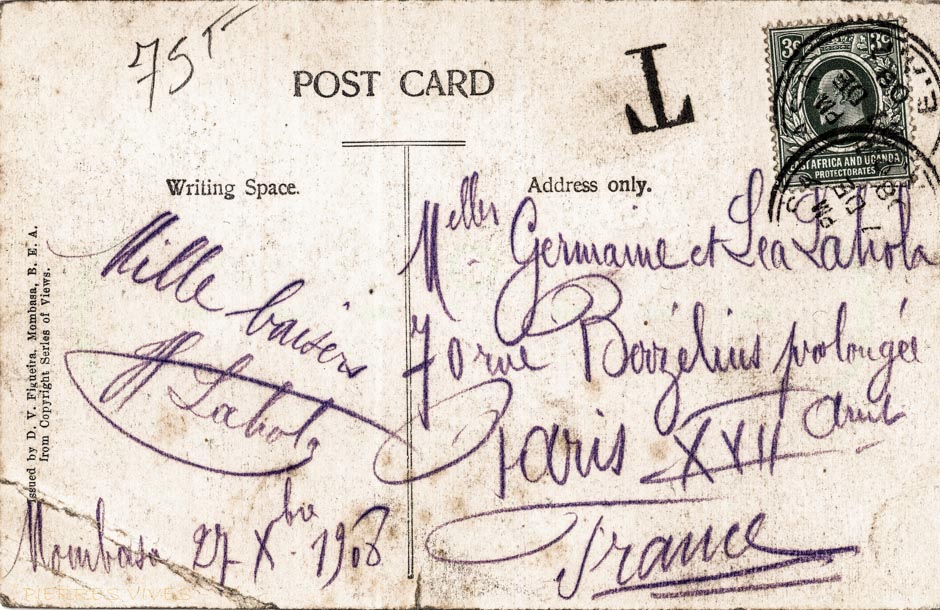 75
POST CARD
T
3c 3c
EAST AFRICA AND UGANDA
PROTECTORATES
Writing Space.
Address only.
Issued by D. V. Figueira, Mombasa, B. E. A.
from Copyright Series of Views.
Mille baisers
Lahola
Mombasa 27 Xbre 1908
Melles Germaine et Léa Lahola
70 rue Berzélius prolongée
Paris XVII Arrnt
France
PIERRES VIVES